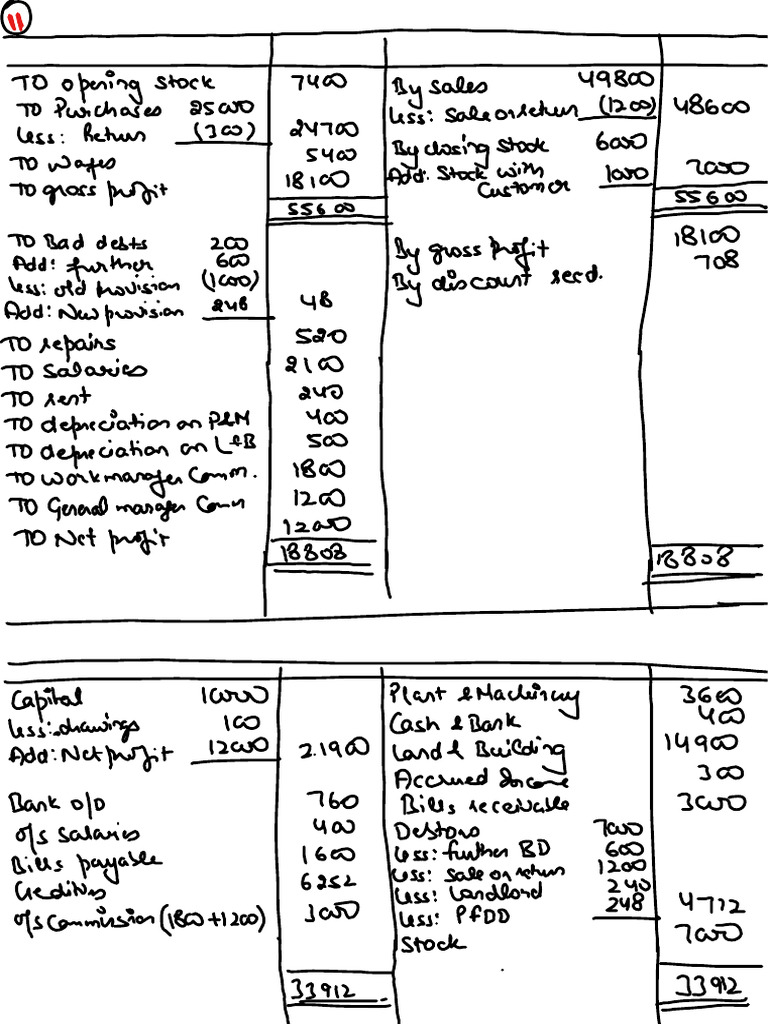 11
TO opening stock 7400 By sales 49800
TO Purchases 25000 less: Sale or return (1200) 48600
less: Return (300) 24700 By closing stock 6000
TO wages 5400 Add: Stock with customer 1000 7000
TO gross profit 18100
55600 55600
TO Bad debts 200 By gross profit 18100
Add: further 600 By discount recd. 708
less: old provision (1000)
Add: New provision 248 48
TO repairs 520
TO salaries 2100
TO rent 240
TO depreciation on P&M 400
TO depreciation on L&B 500
TO work manager Comm. 1800
TO General manager Comm 1200
TO Net profit 12000
18808 18808
Capital 10000 Plant & Machinery 3600
less: drawings 100 Cash & Bank 400
Add: Net profit 12000 21900 Land & Building 14900
Accrued Income 300
Bank O/D 760 Bills receivable 3000
o/s salaries 400 Debtors 7000
Bills payable 1600 less: further BD 600
Creditors 6252 less: sale or return 1200
o/s Commission (1800+1200) 3000 less: landlord 240
less: PfDD 248 4712
Stock 7000
33912 33912